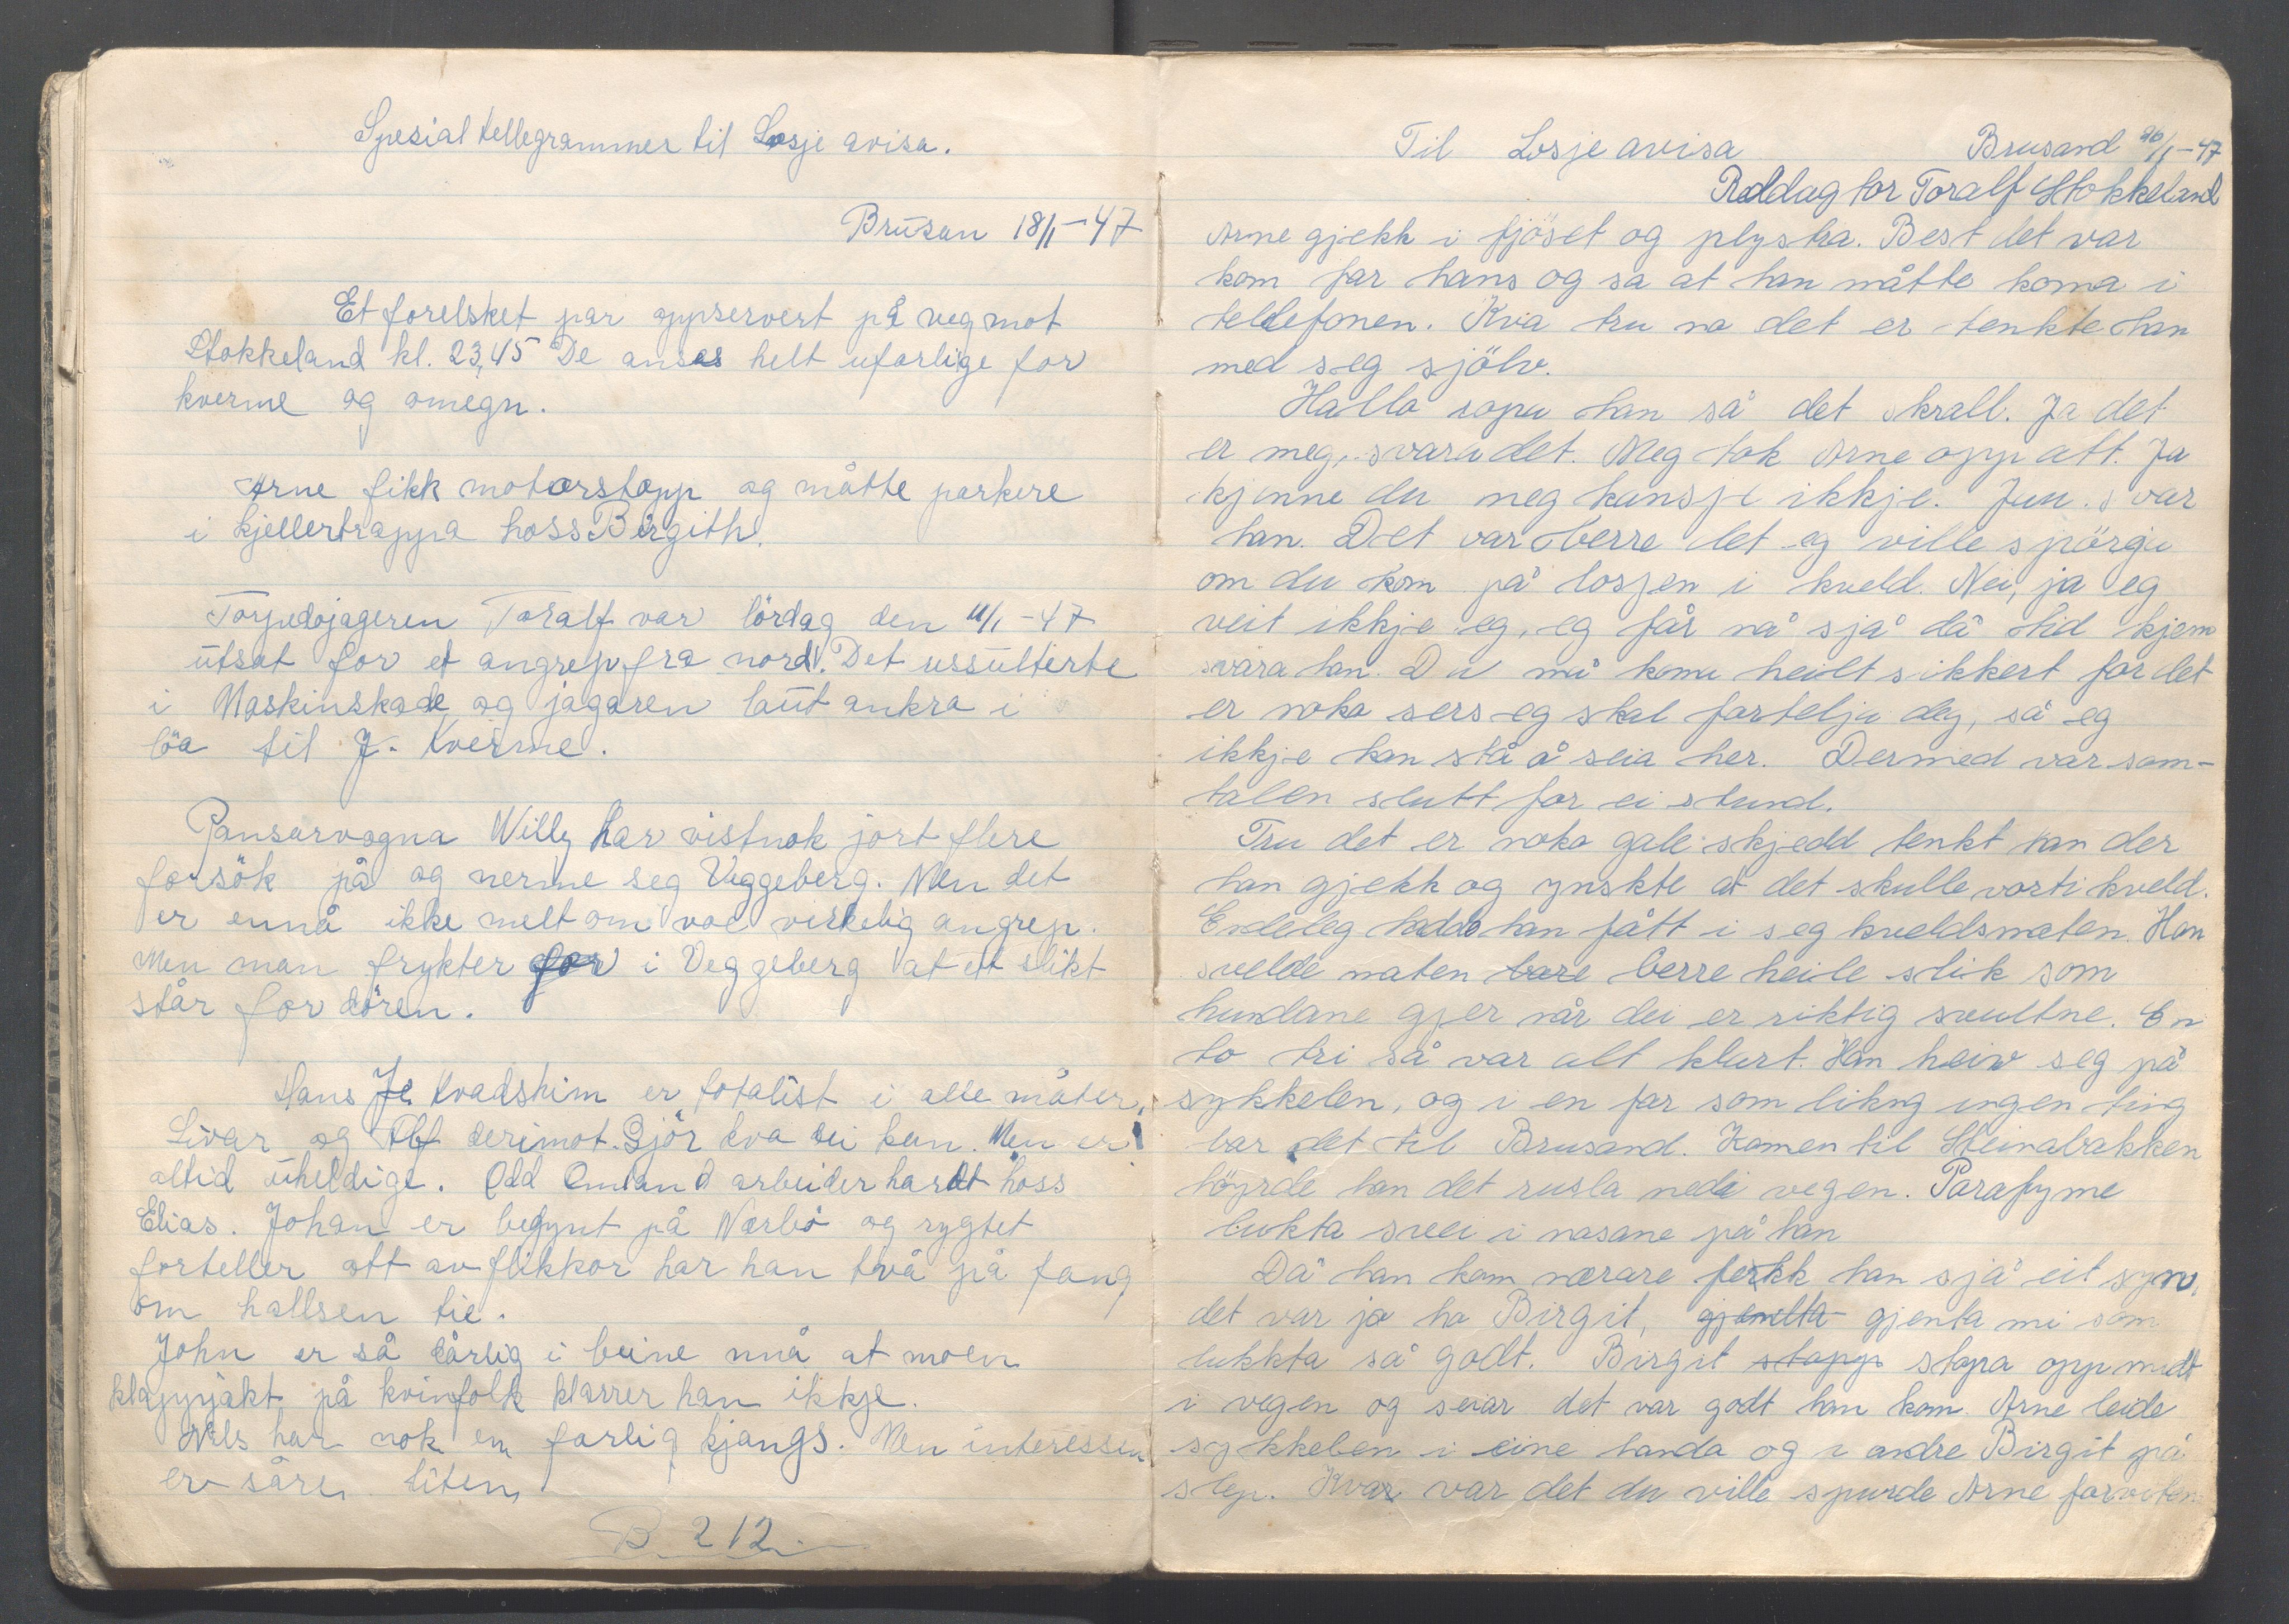 Spesial tellegrammer til Losje avisa.
Brusan 18/1-47
Et forelsket par oppservert på veg mot
Stokkeland kl. 23,45 De anses helt ufarlige for
kverme og omegn.
Arne fikk motorstopp og måtte parkere
i kjellertrappa hoss Birgith.
Torpedojageren Toralf var lördag den 11/1-47
utsat for et angrep fra nord. Det ussulterte
i Maskinskade og jagaren laut ankra i
löa til J. Kverme.
Pansarvogna Willy har vistnok jort flere
forsök på og nerme seg Veggeberg. Men det
er ennå ikke melt om noe virkelig angrep.
Men man frykter for i Veggeberg at ett slikt
står for dören.
Hans Je. Kvadshim er totalist i alle måter.
Sivar og Alf derimot. Gjör kva dei kan. Men er
altid uheldige. Odd Omland arbeider hardt hoss
Elias. Johan er begynt på Nærbö og rygtet
forteller att av flikkor har han två på fang
om hallsen tie.
John er så dårlig i beine nnå at moen
klappjakt på kvinfolk klarrer han ikkje.
Nils har nok en farlig kjangs. Men interessen
er såre liten
B 212.
Til Losje avisa Brusand 26/1-47
Reddagtor Toralf Stokkeland
Arne gjekk i fjöset og plystra. Best det var
kom far hans og sa at han måtte koma i
tellefonen. Kva tru no det er tenkte han
med seg sjölv.
Hallo ropa han så det skrall. Ja det
er meg, svara det. Meg tok Arne opp att. Ja
kjenne du meg kansje ikkje. Juu. svar
han. Det var berre det eg ville spörgja
om du kom på losjen i kveld. Nei, ja eg
veit ikkje eg, eg får nå sjå då tid kjem
svara han. Du må koma heilt sikkert for det
er noko sers eg skal fortelja deg, så eg
ikkje kan stå å seia her. Dermed var sam-
talen slutt for ei stund.
Tru det er noko gale skjedd tenkt han der
han gjekk og ynskte at det skulle vorti kveld.
Endeleg hadde han fått i seg kveldsmaten. Han
svelde maten bare berre heile slik som
hundane gjer når dei er riktig svultne. En
to tri så var alt klart. Han heiv seg på
sykkelen, og i en far som likng ingen ting
bar det til Brusand. Komen til Steinabakken
höyrde han det rusla nedi vegen. Parafyme
lukta svei i nasane på han
Då han kom nærare fekk han sjå eit syn,
det var jo ho Birgit, gjentta gjenta mi som
lukkta så godt. Birgit stopp stopa opp midt
i vegen og seiar det var godt han kom. Arne leide
sykkelen i eine handa og i andre Birgit på
slep. Kvar var det du ville spurde Arne forviten